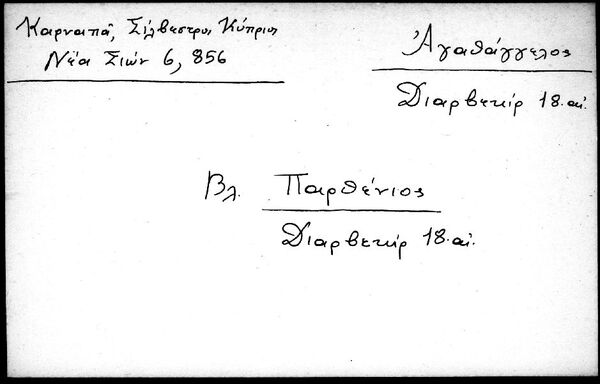 Καρναπᾶ, Σίλβεστρος Κύπριος
Νέα Σιών 6, 856
Ἀγαθάγγελος
Διαρβεκίρ 18. αἰ.
Βλ. Παρθένιος
Διαρβεκίρ 18. αἰ.